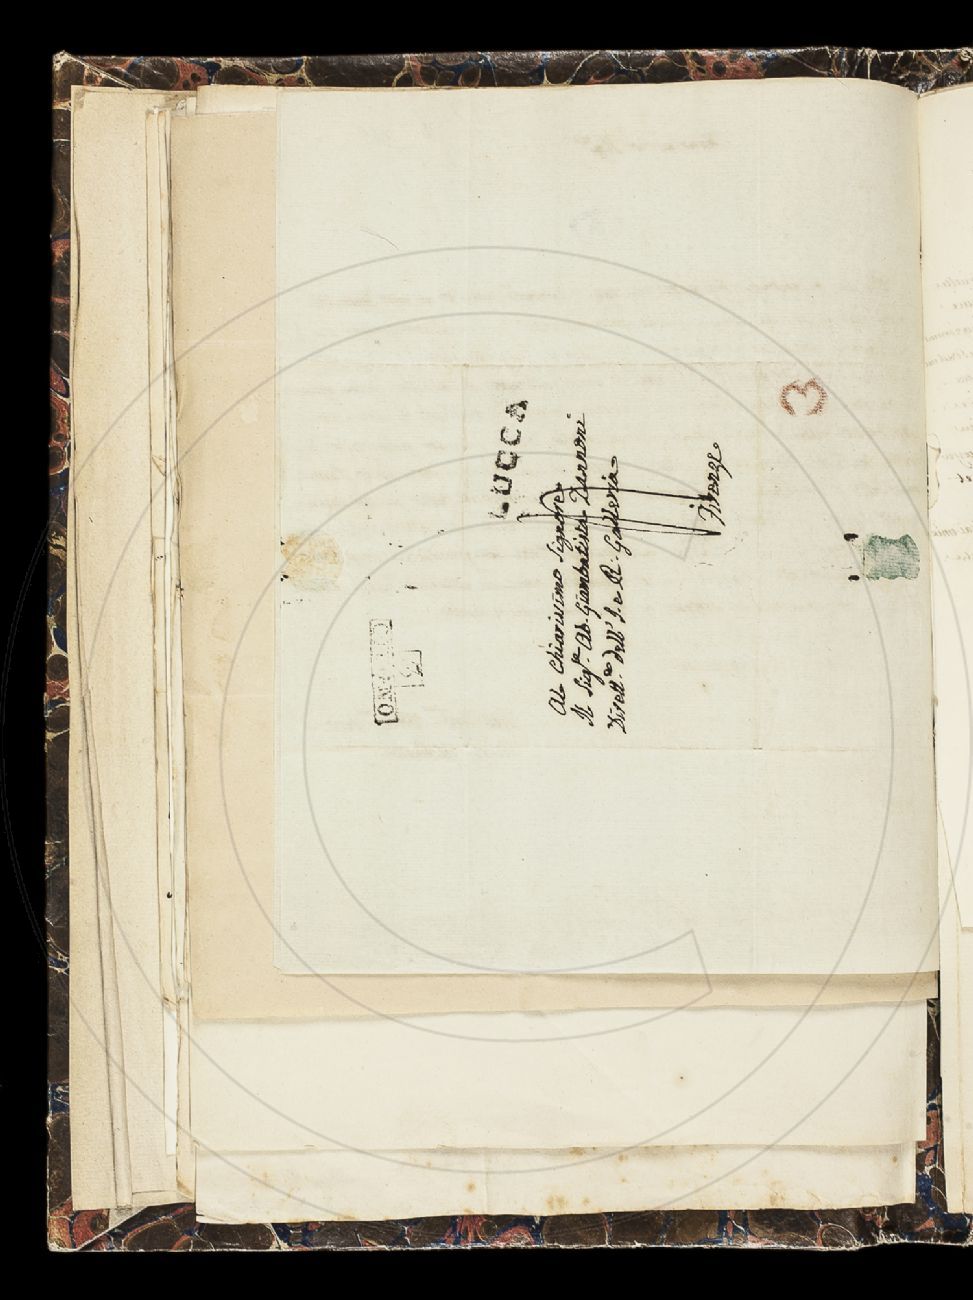 LUCCA
Al Chiarissimo Signore
Il Sigre. Ab. Giambatista Zannoni
Dirett.re dell' I. e R. Galleria
Firenze.
3